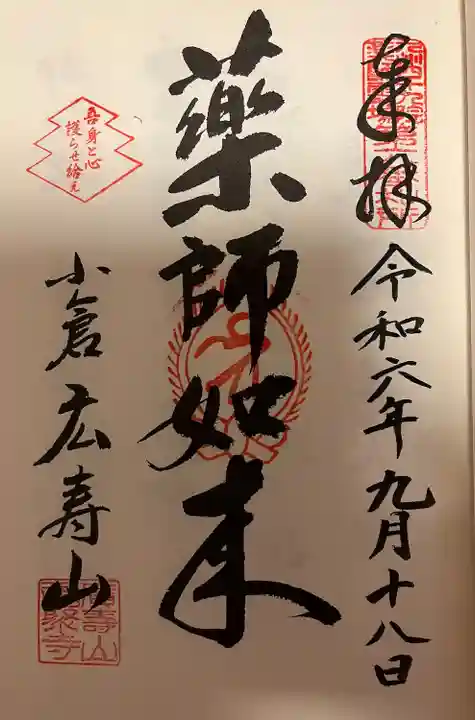 奉拝
令和六年九月十八日
薬師如来
吾身と心
護らせ給え
小倉広寿山
廣壽山
聚寺